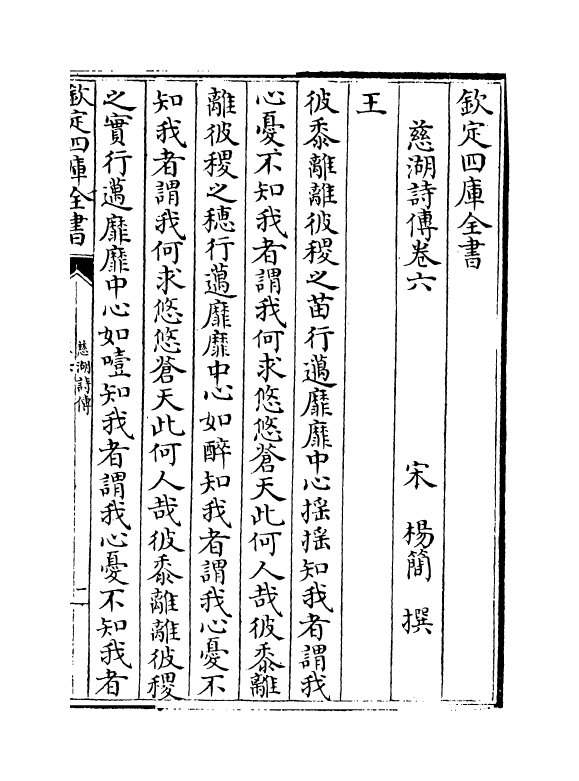 欽定四庫全書
慈湖詩傳卷六
宋 楊簡 撰
王
彼黍離離彼稷之苗行邁靡靡中心揺揺知我者謂我
心憂不知我者謂我何求悠悠蒼天此何人哉彼黍離
離彼稷之穗行邁靡靡中心如醉知我者謂我心憂不
知我者謂我何求悠悠蒼天此何人哉彼黍離離彼稷
之實行邁靡靡中心如噎知我者謂我心憂不知我者
欽定四庫全書
慈湖詩傳